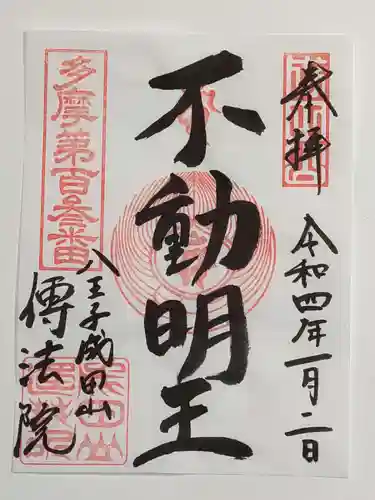 奉拝
令和四年一月二日
不動明王
多摩第百参番
八王子成田山
傳法院